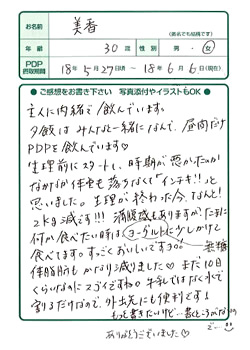 お名前
美香
(匿名でも結構です)
年齢 30歳 性別 男・女
PDP摂取期間 18年5月27日頃 ~ 18年6月6日(現在)
●ご感想をお書き下さい 写真添付やイラストもOK●
主人に内緒で飲んでいます。
夕飯はみんなと一緒になので、昼間だけ
PDPを飲んでいます♥
生理前にスタートし、時期が悪かったのか
なかなか体重も落ちなくて「インチキ!!」と
思いました。生理が終わった今、なんと!
2kg減です!!! 満腹感もありますが、たまに
何か食べたい時はヨーグルトに少しかけて
食べてます。すっごくおいしいですョ。
無糖
体脂肪もかなり減りました♡まだ10日
くらいなのにスゴイですね。牛乳ではなく水で
割るだけなので、外出先にも便利です!
もっと書きたいけど…書ところがない
で…
ありがとうございました♡